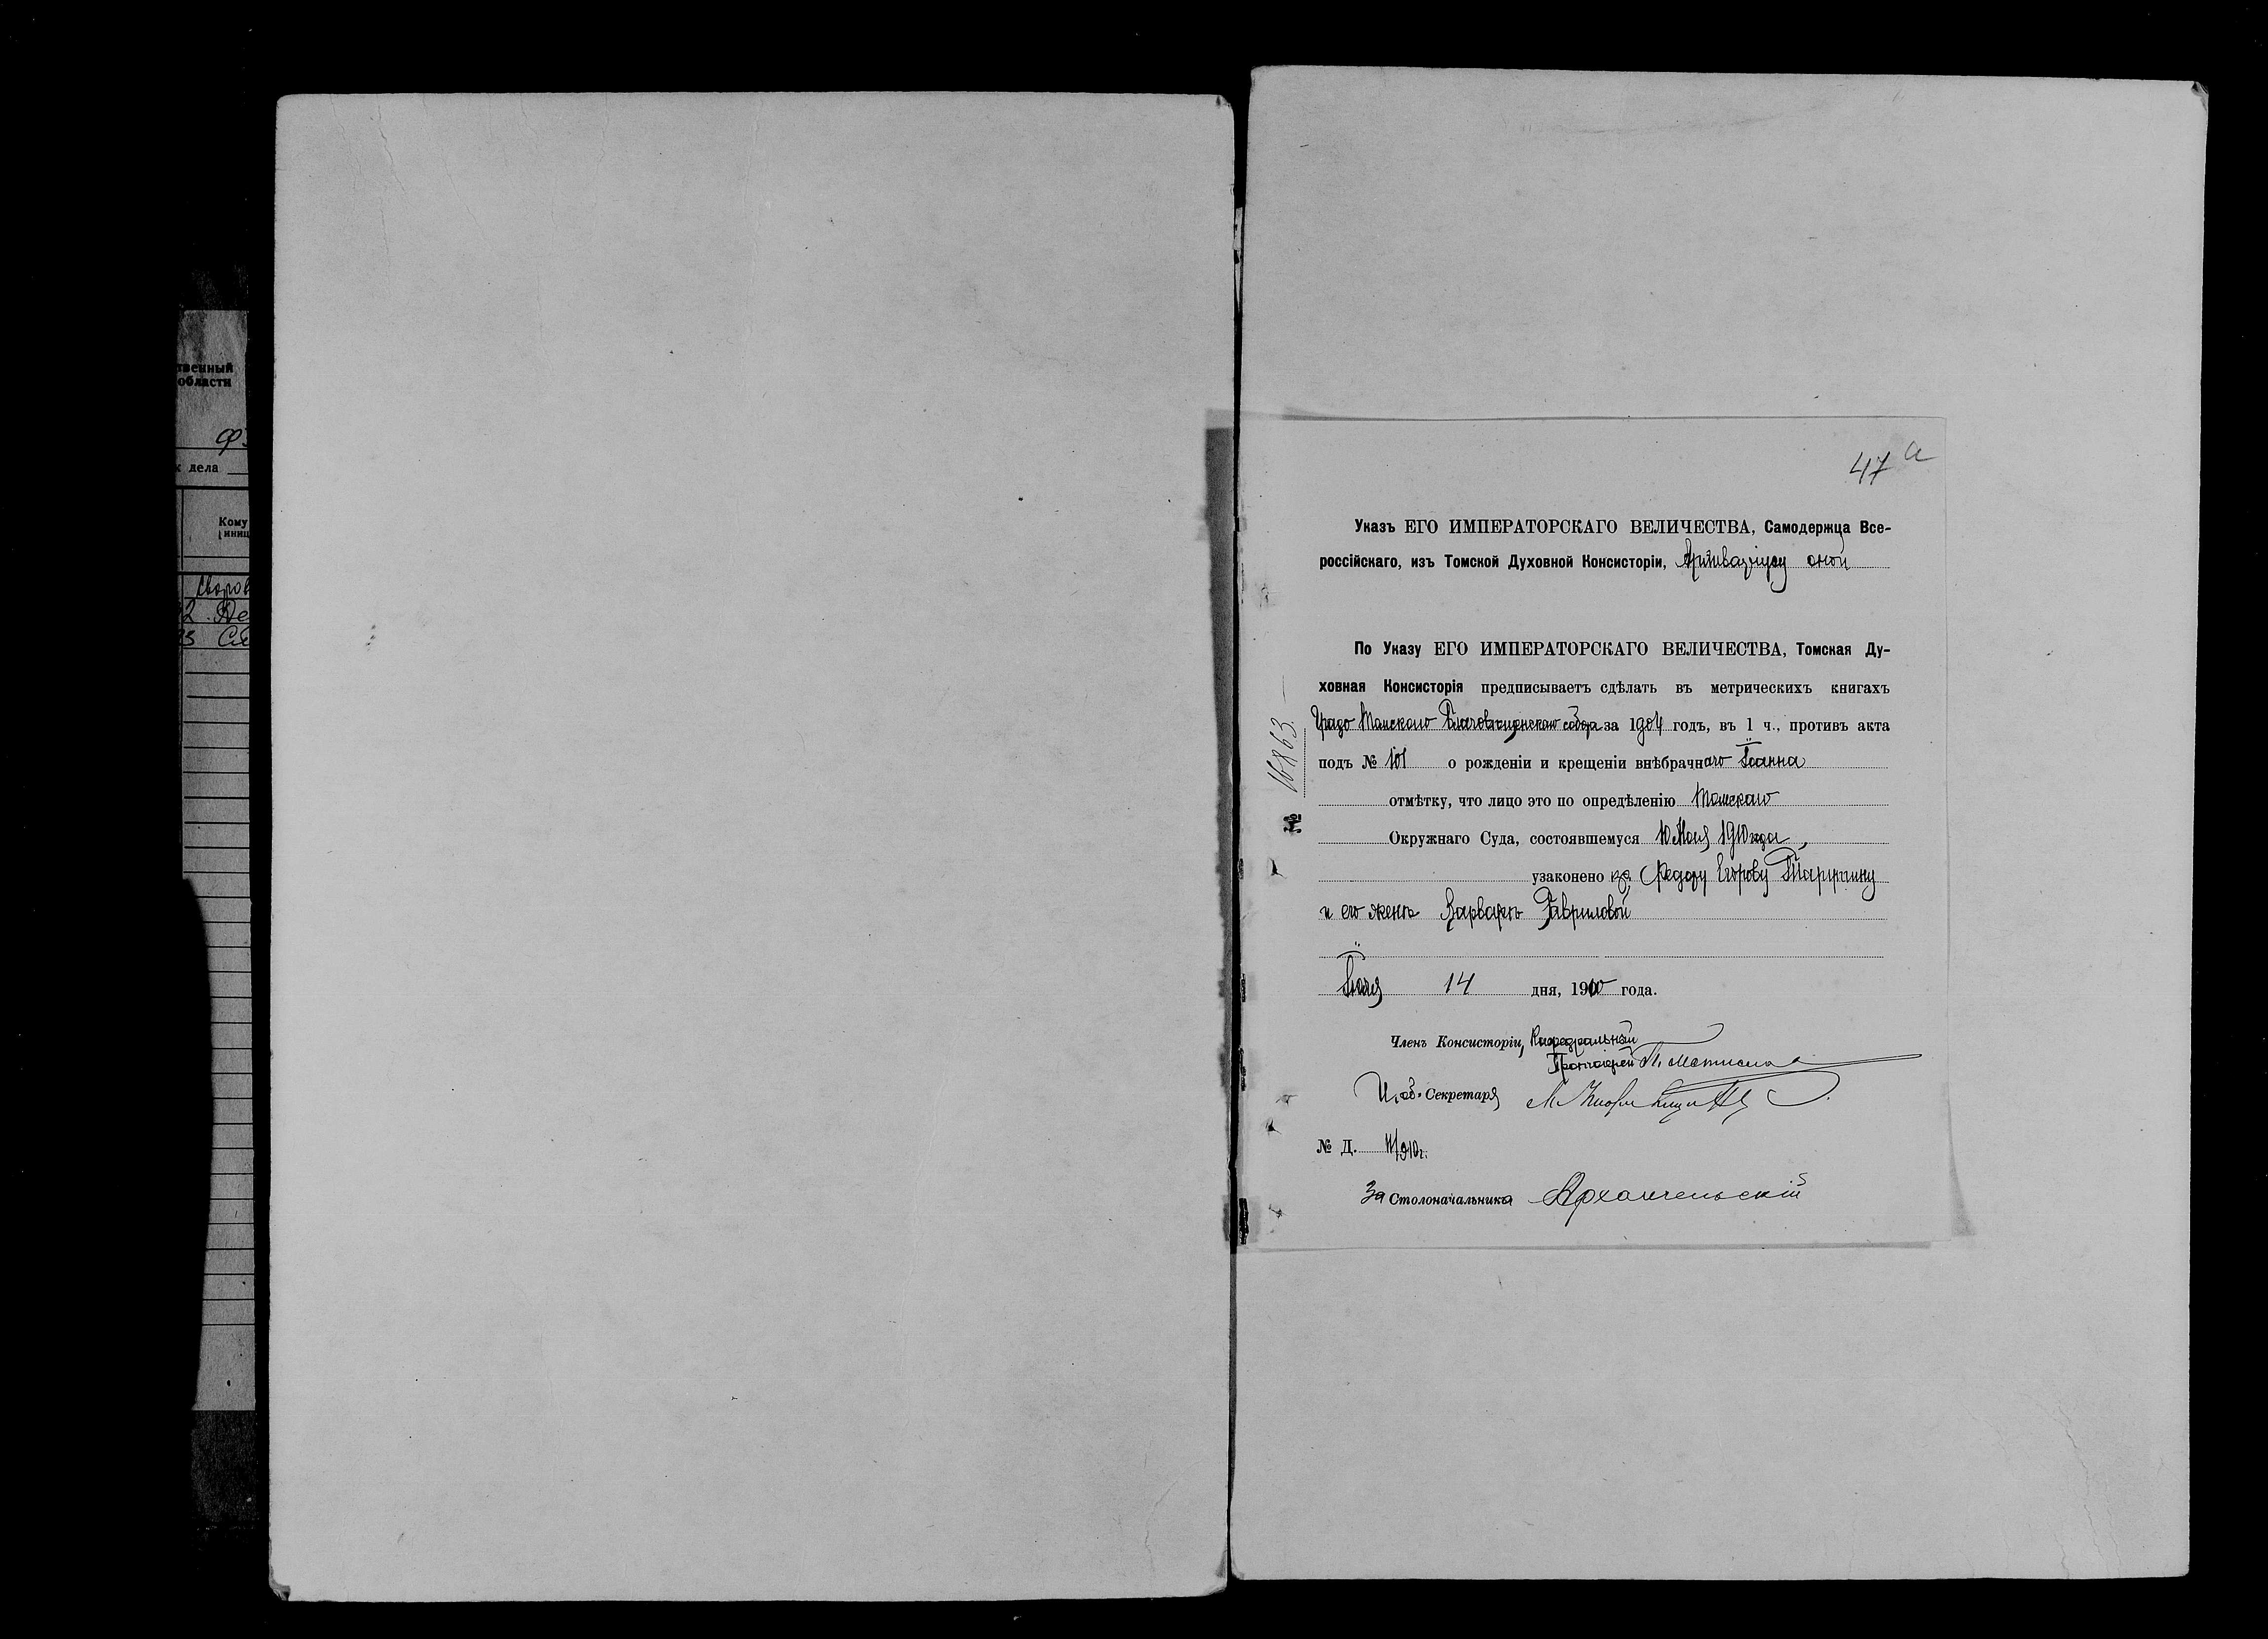 твенный
области
дела
Кому
47 а
Указъ ЕГО ИМПЕРАТОРСКАГО ВЕЛИЧЕСТВА, Самодержца Все-
россійскаго, изъ Томской Духовной Консисторіи, Архиваріусу оной
По Указу ЕГО ИМПЕРАТОРСКАГО ВЕЛИЧЕСТВА, Томская Ду-
ховная Консисторія предписываетъ сдѣлать въ метрическихъ книгахъ
Градо Томскаго Благовѣщенскаго собора за 1904 годъ, въ 1 ч., противъ акта
подъ № 101 о рожденіи и крещеніи внѣбрачнаго Іоанна
отмѣтку, что лицо это по опредѣленію Томскаго
Окружнаго Суда, состоявшемуся 10 Мая 1910 года,
узаконено Федору Егорову
и его женѣ Варварѣ Гавриловой
14 дня, 1910 года.
Членъ Консисторіи, Каѳедральный
Протоіерей П. Мстиславскій
И. об. Секретаря
№ Д. /910 г.
За Столоначальника Архангельскій
№ 16863